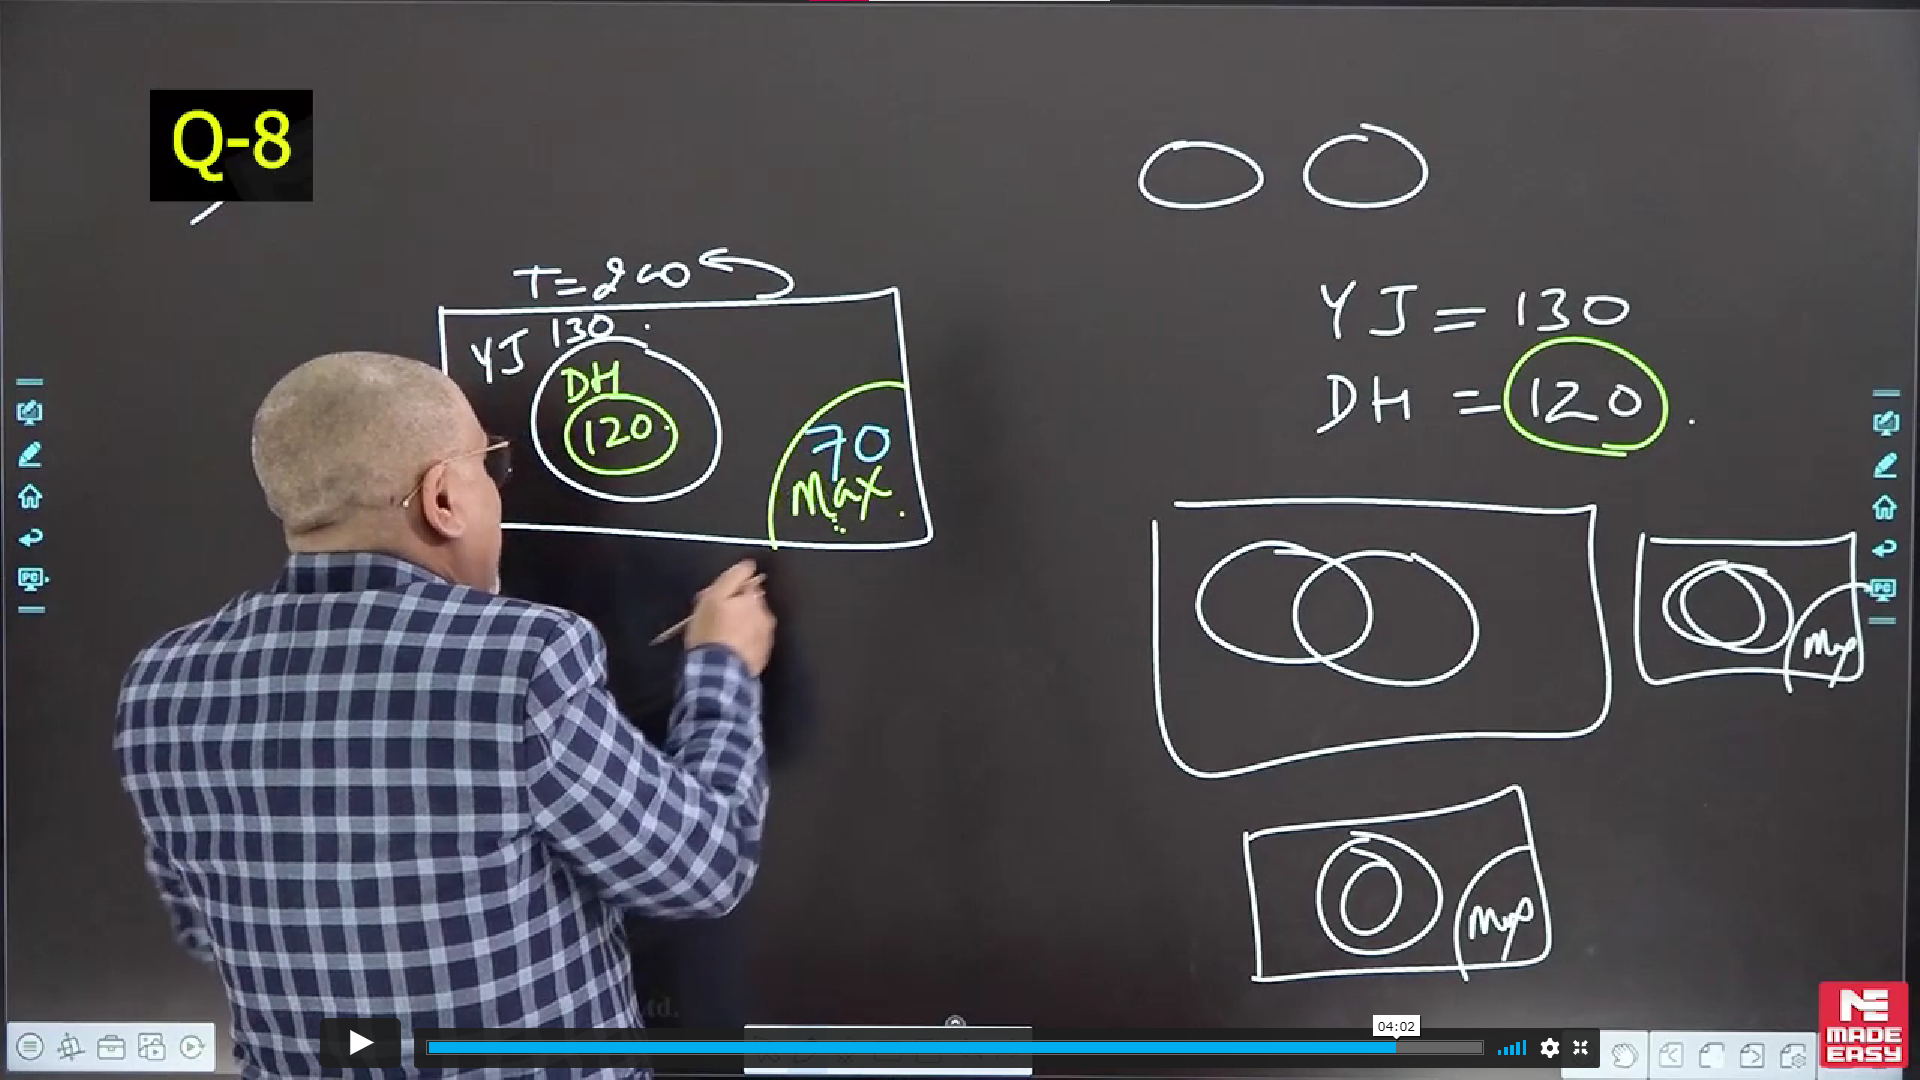 Q-8
T=200
YJ 130
DH
120
70
Max
YJ = 130
DH = 120
Max
Max
td.
04:02
PC
PC
MADE
EASY